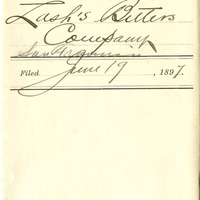 Lash's Bitters
Company
San Francisco
Filed June 19, 1897.